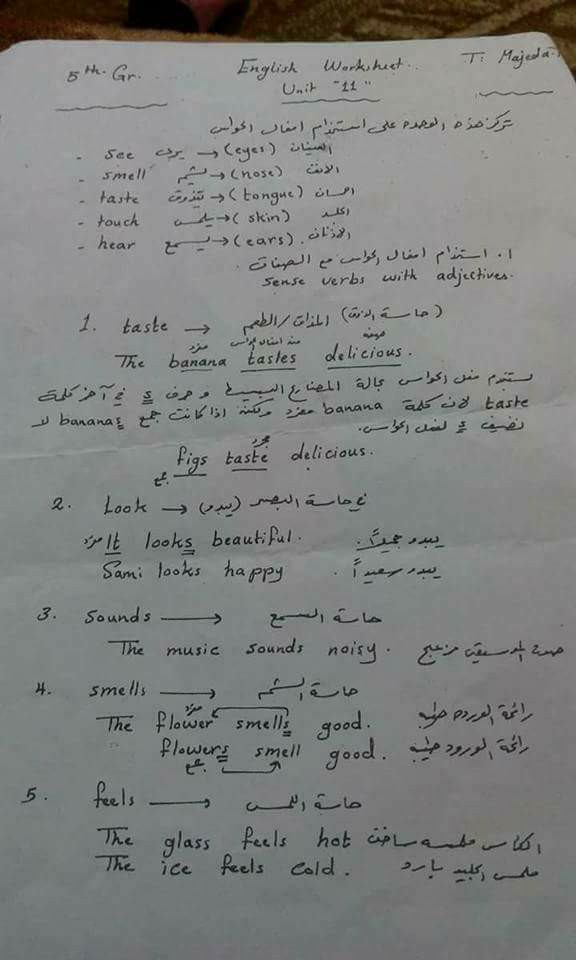 5th Gr. English Worksheet.. T: Majeda
Unit "11"
تركز هذه الوحدة على استخدام افعال الحواس
- see يرى → (eyes) العينان
- smell يشم → (nose) الانف
- taste يتذوق → (tongue) اللسان
- touch يلمس → (skin) الجلد
- hear يسمع → (ears) الاذنان.
١. استخدام افعال الحواس مع الصفات.
sense verbs with adjectives.
1. taste → المذاق/الطعم (حاسة الذوق)
مفرد صفة
The banana tastes delicious.
نستخدم فعل الحواس بحالة المضارع البسيط وحرف s في آخر كلمة
taste لان كلمة banana مفرد ولكن اذا كانت جمع bananas لا
نضيف s لفعل الحواس.
مجرد
figs taste delicious.
جمع
2. Look → (يبدو) في حاسة البصر
مفرد It looks beautiful. يبدو جميلاً.
Sami looks happy يبدو سعيداً.
3. Sounds → حاسة السمع
The music sounds noisy. صوت الموسيقى مزعج
4. smells → حاسة الشم
مفرد
The flower smells good. رائحة الوردة طيبة
flowers smell good. رائحة الورود طيبة
جمع
5. feels → حاسة اللمس
The glass feels hot الكاس ملمسه ساخن
The ice feels cold. ملمس الجليد بارد